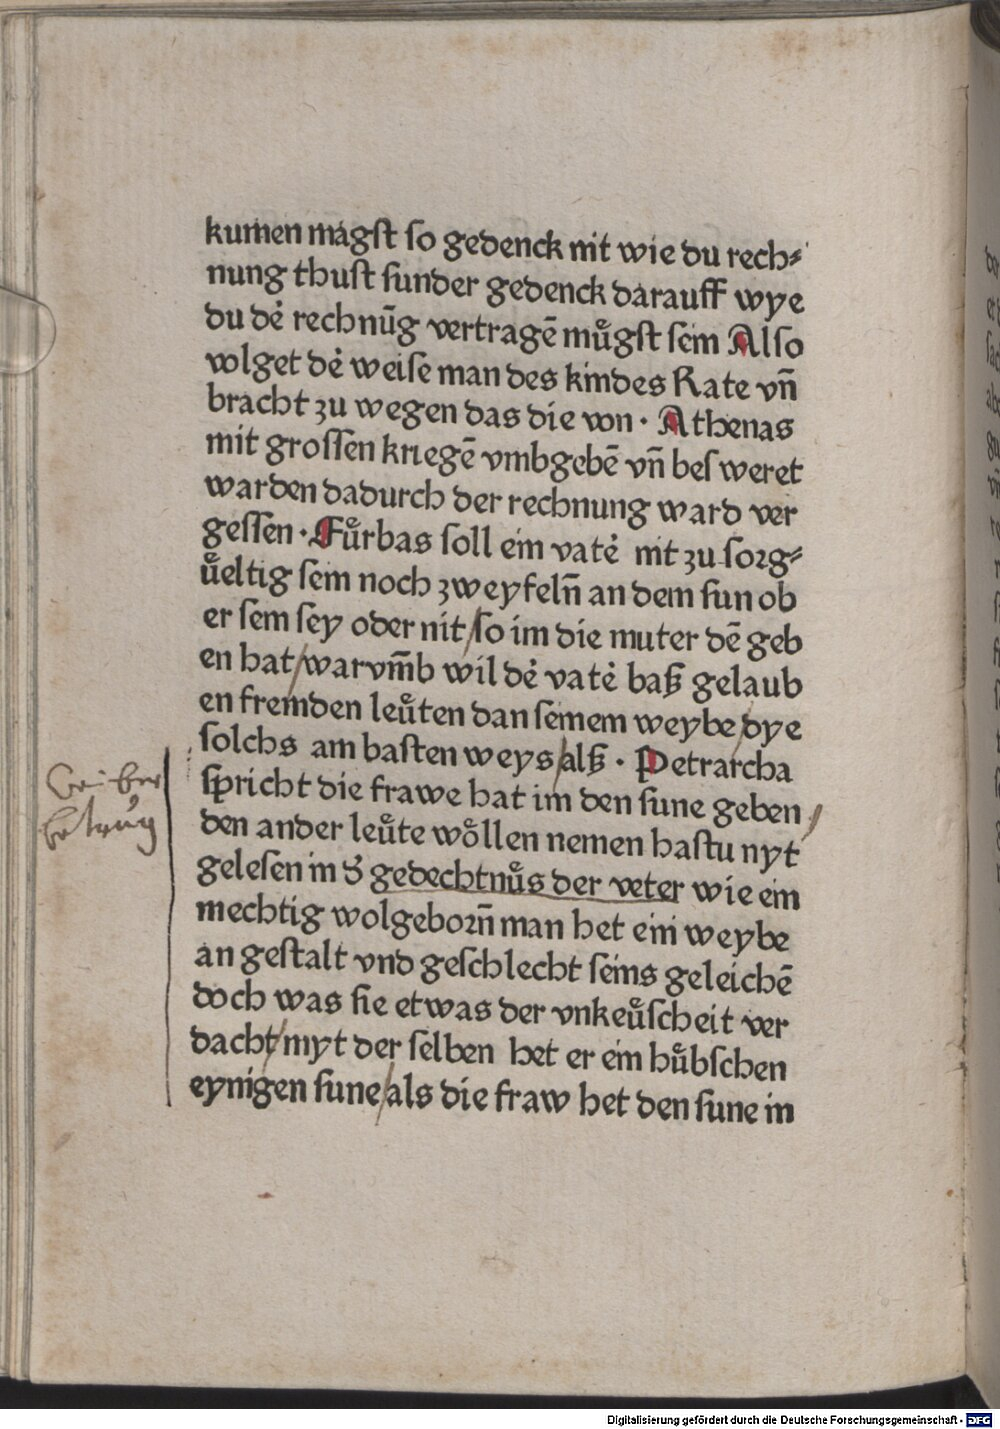 kumen magst so gedenck nit wie du rech⸗
nung thust sunder gedenck darauff wye
du dė rechnūg vertragē mu̇gst sein Also
volget dė weise man des kindes Rate vn̄
bracht zu wegen das die von · Athenas
mit grossen kriegē vmbgebē vn̄ bes weret
warden dadurch der rechnung ward ver
gessen · Fůrbas soll ein vatė nit zu sorg⸗
ůeltig sein noch zweyfeln̄ an dem sun ob
er sein sey oder nit/so im die muter dē geb
en hat/warvm̄b wil dė vatė baß gelaub
en fremden leůten dan seinem weybe/dye
solchs am basten weys/alß · Petrarcha
spricht die frawe hat im den sune geben/
den ander leůte wo̊llen nemen hastu nyt
gelesen in d' gedechtnůs der veter wie ein
mechtig wolgeborn̄ man het ein weybe
an gestalt vnd geschlecht seins geleichē
doch was sie etwas der vnkeůscheit ver
dacht/myt der selben het er ein hůbschen
eynigen sune/als die fraw het den sune in
weiber
betrug
Digitalisierung gefördert durch die Deutsche Forschungsgemeinschaft - DFG